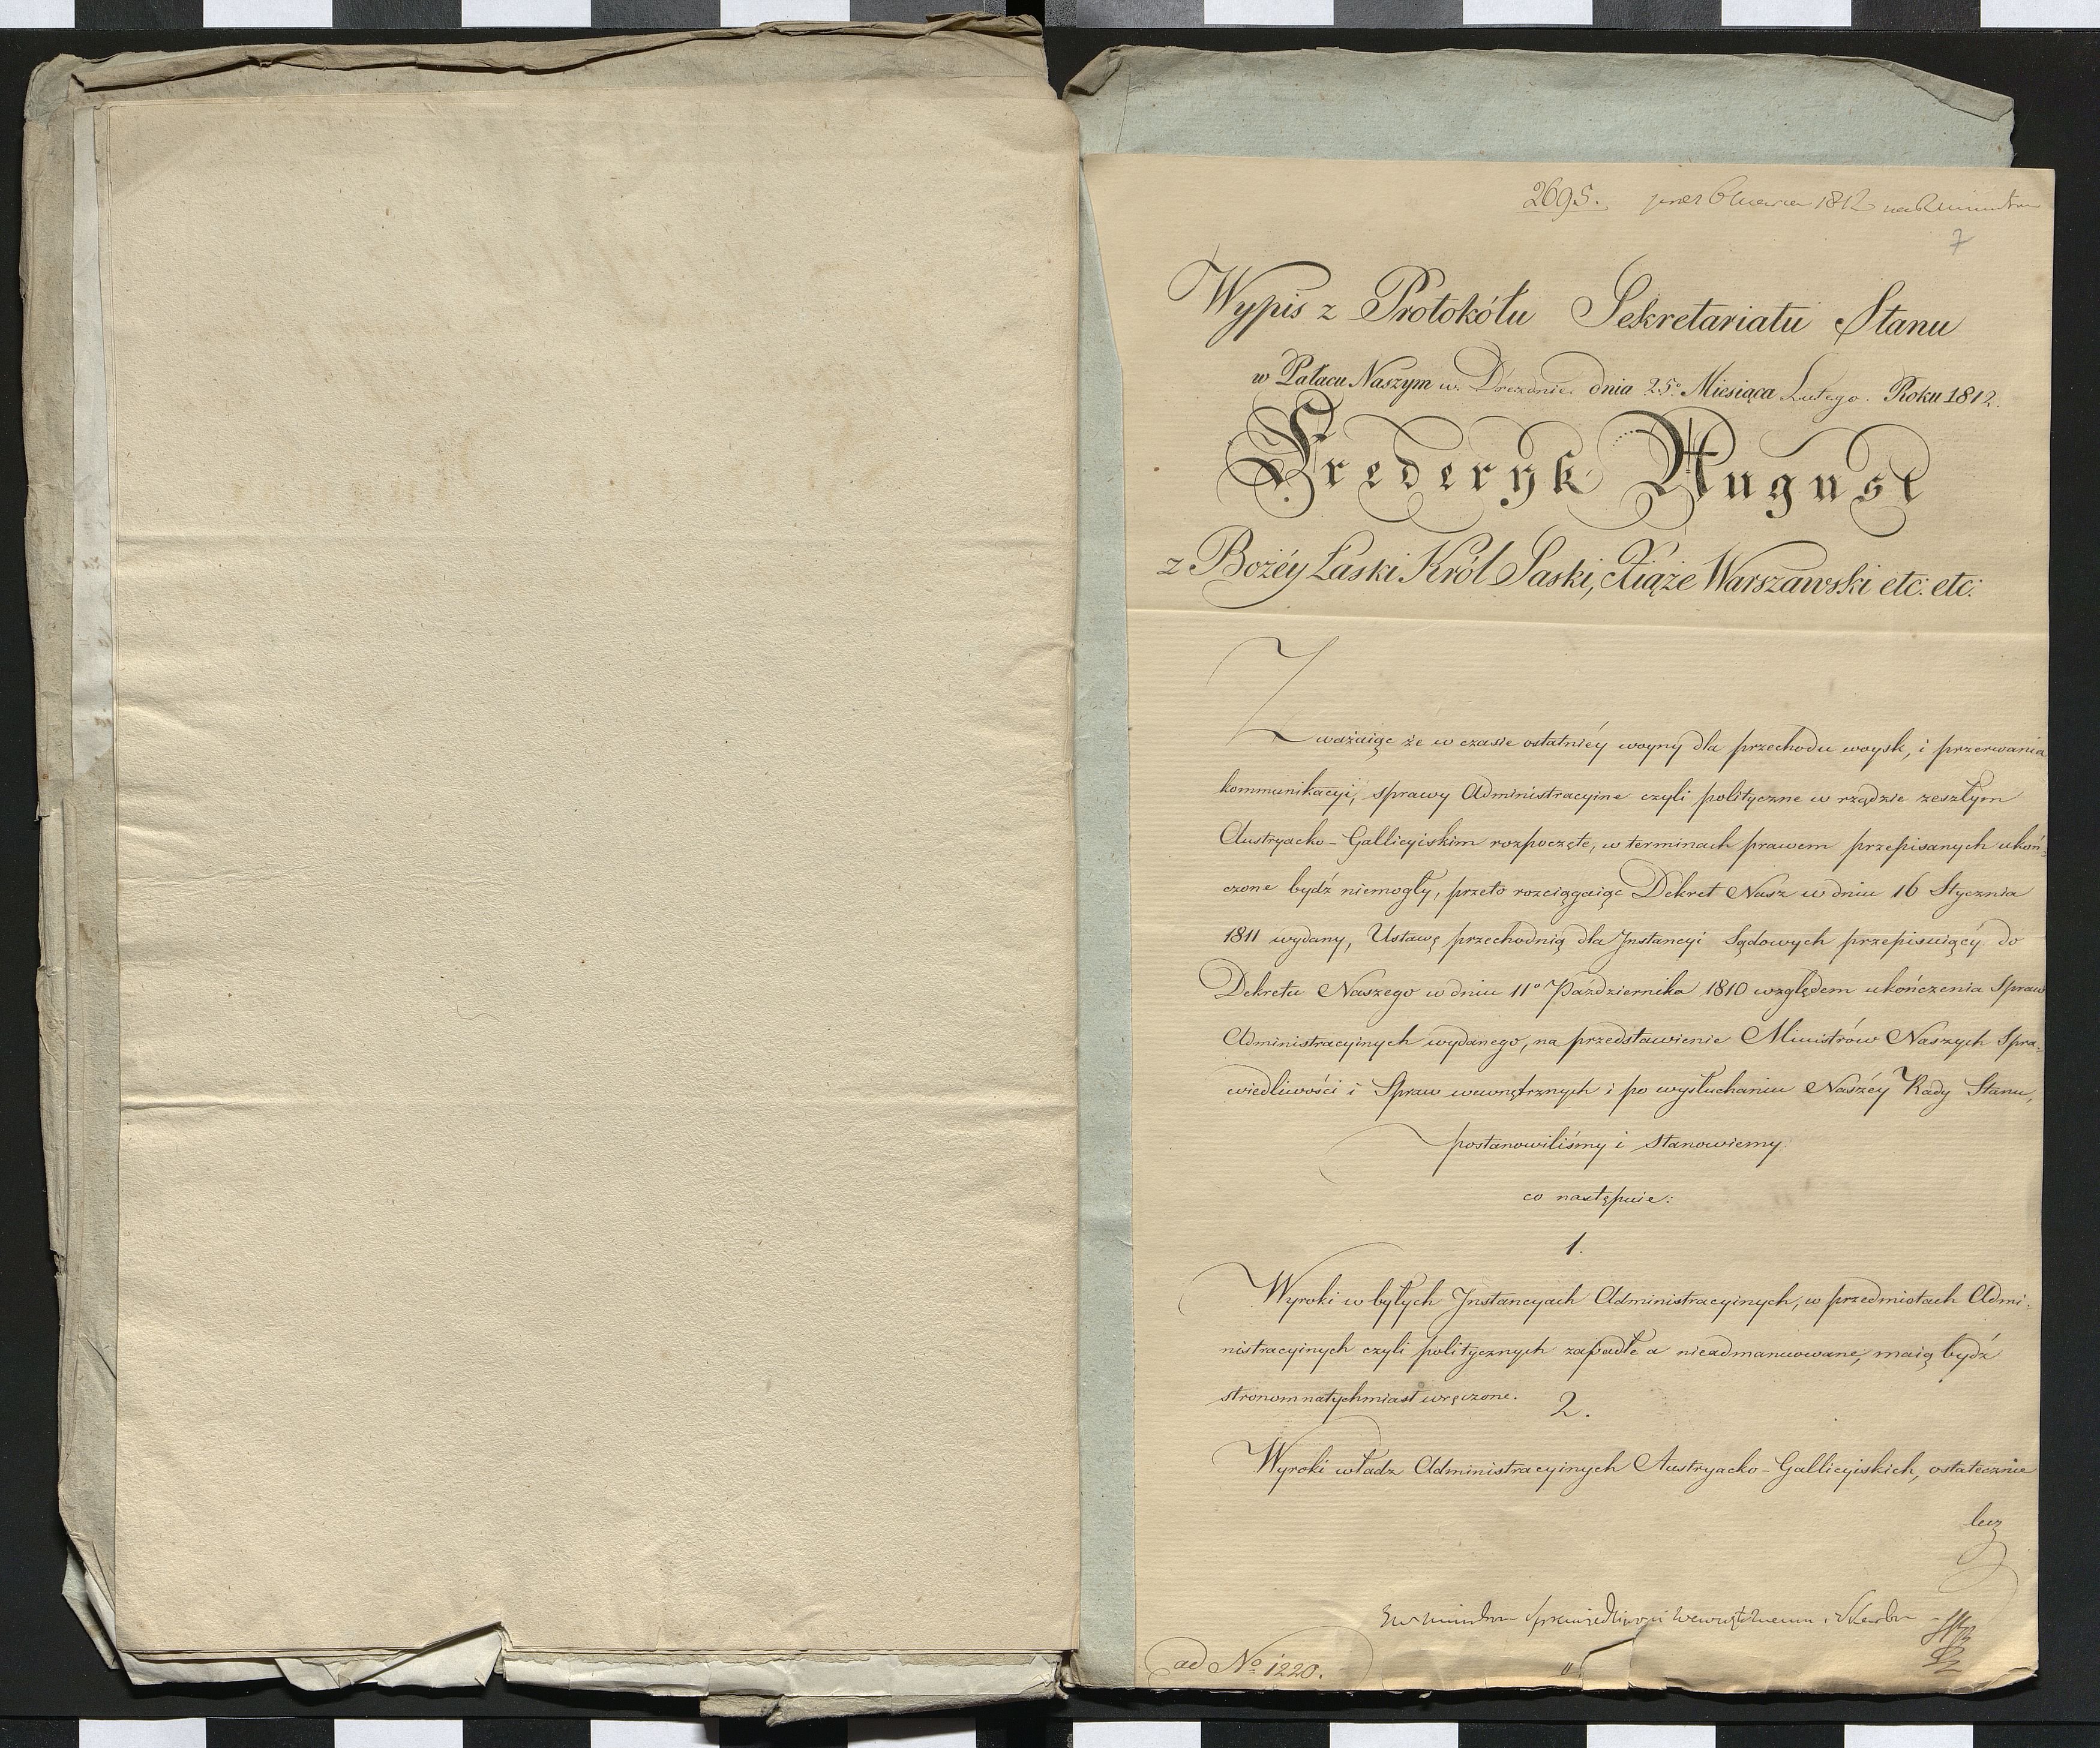 2695. 1812
7
Wypis z Protokółu Sekretariatu Stanu
w Pałacu Naszym w Dreznie dnia 25º Miesiąca Lutego. Roku 1812.
Frederyk August
z Bożéy Łaski Król Saski, Xiąże Warszawski etc: etc:
Zważaiąc że w czasie ostatniéy woyny dla przechodu woysk, i przerwania
kommunikacyi, sprawy Administracyine czyli polityczne w rządzie zeszłym
Austryacko-Gallicyiskim rozpoczęte, w terminach prawem przepisanych ukoń-
czone bydź niemogły, przeto rozciągaiąc Dekret Nasz w dniu 16 Stycznia
1811 wydany, Ustawę przechodnią dla Instancyi Sądowych przepisuiący do
Dekretu Naszego w dniu 11º Października 1810 względem ukończenia Spraw
Administracyinych wydanego, na przedstawienie Ministrów Naszych Spra-
wiedliwości i Spraw wewnętrznych i po wysłuchaniu Naszéy Rady Stanu,
postanowiliśmy i stanowiemy
co następuie:
1.
Wyroki w byłych Instancyach Administracyinych, w przedmiotach Admi-
nistracyinych czyli politycznych zapadłe a niezdmanuowane, maią bydź
stronom natychmiast wręczone.
2.
Wyroki władz Administracyinych Austryacko-Gallicyiskich, ostatecznie
lecz
Sprawiedliwości Wewnętrznemu i Skarbu
ad Nº 1220.